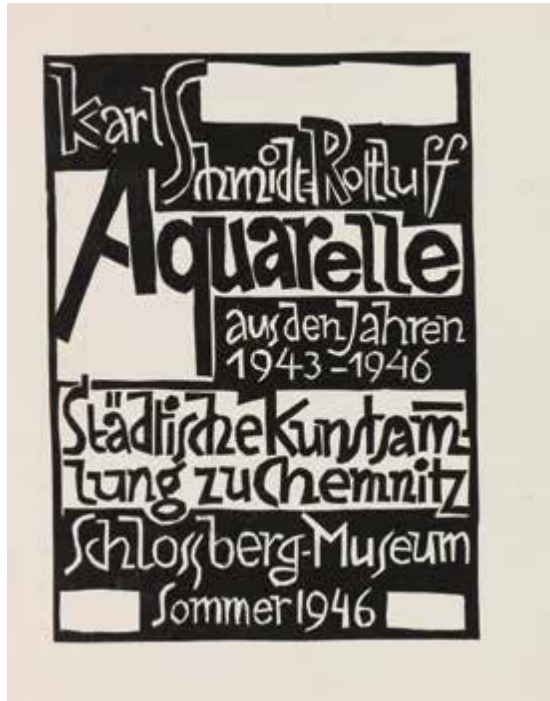 Karl
Schmidt-Rottluff
Aquarelle
aus den Jahren
1943-1946
Städtische Kunstsam̄-
lung zu Chemnitz
Schlossberg-Museum
Sommer 1946